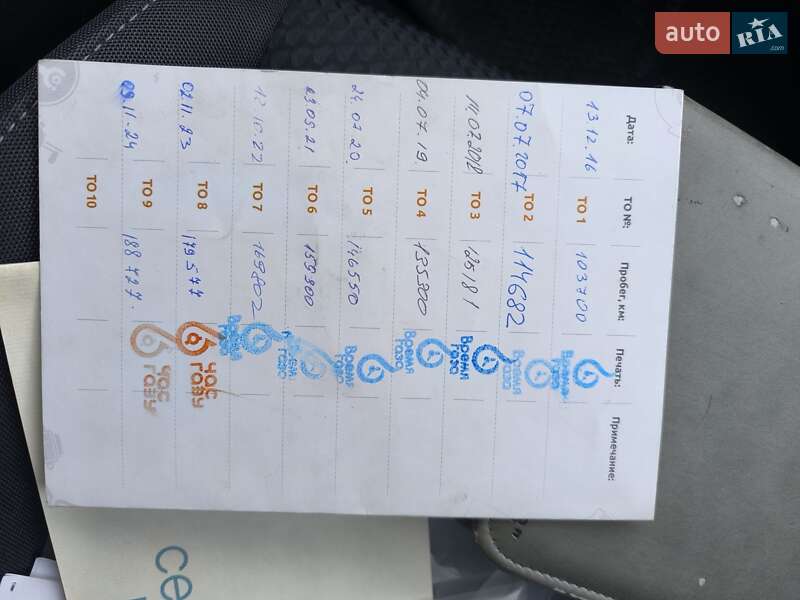 auto RIA .com
Дата: ТО №: Пробег, км: Печать: Примечание:
13.12.16 ТО 1 103700 Время газа
07.07.2017 ТО 2 114682 Время газа
11.07.2018 ТО 3 125181 Время газа
04.07.19 ТО 4 135800 Время газа
24.07.20. ТО 5 146550 Время газа
03.09.21 ТО 6 159800 Время газа
12.10.22 ТО 7 169802 Время газа
02.11.23 ТО 8 179577 час газу
09.11.24 ТО 9 188727. час газу
ТО 10
се